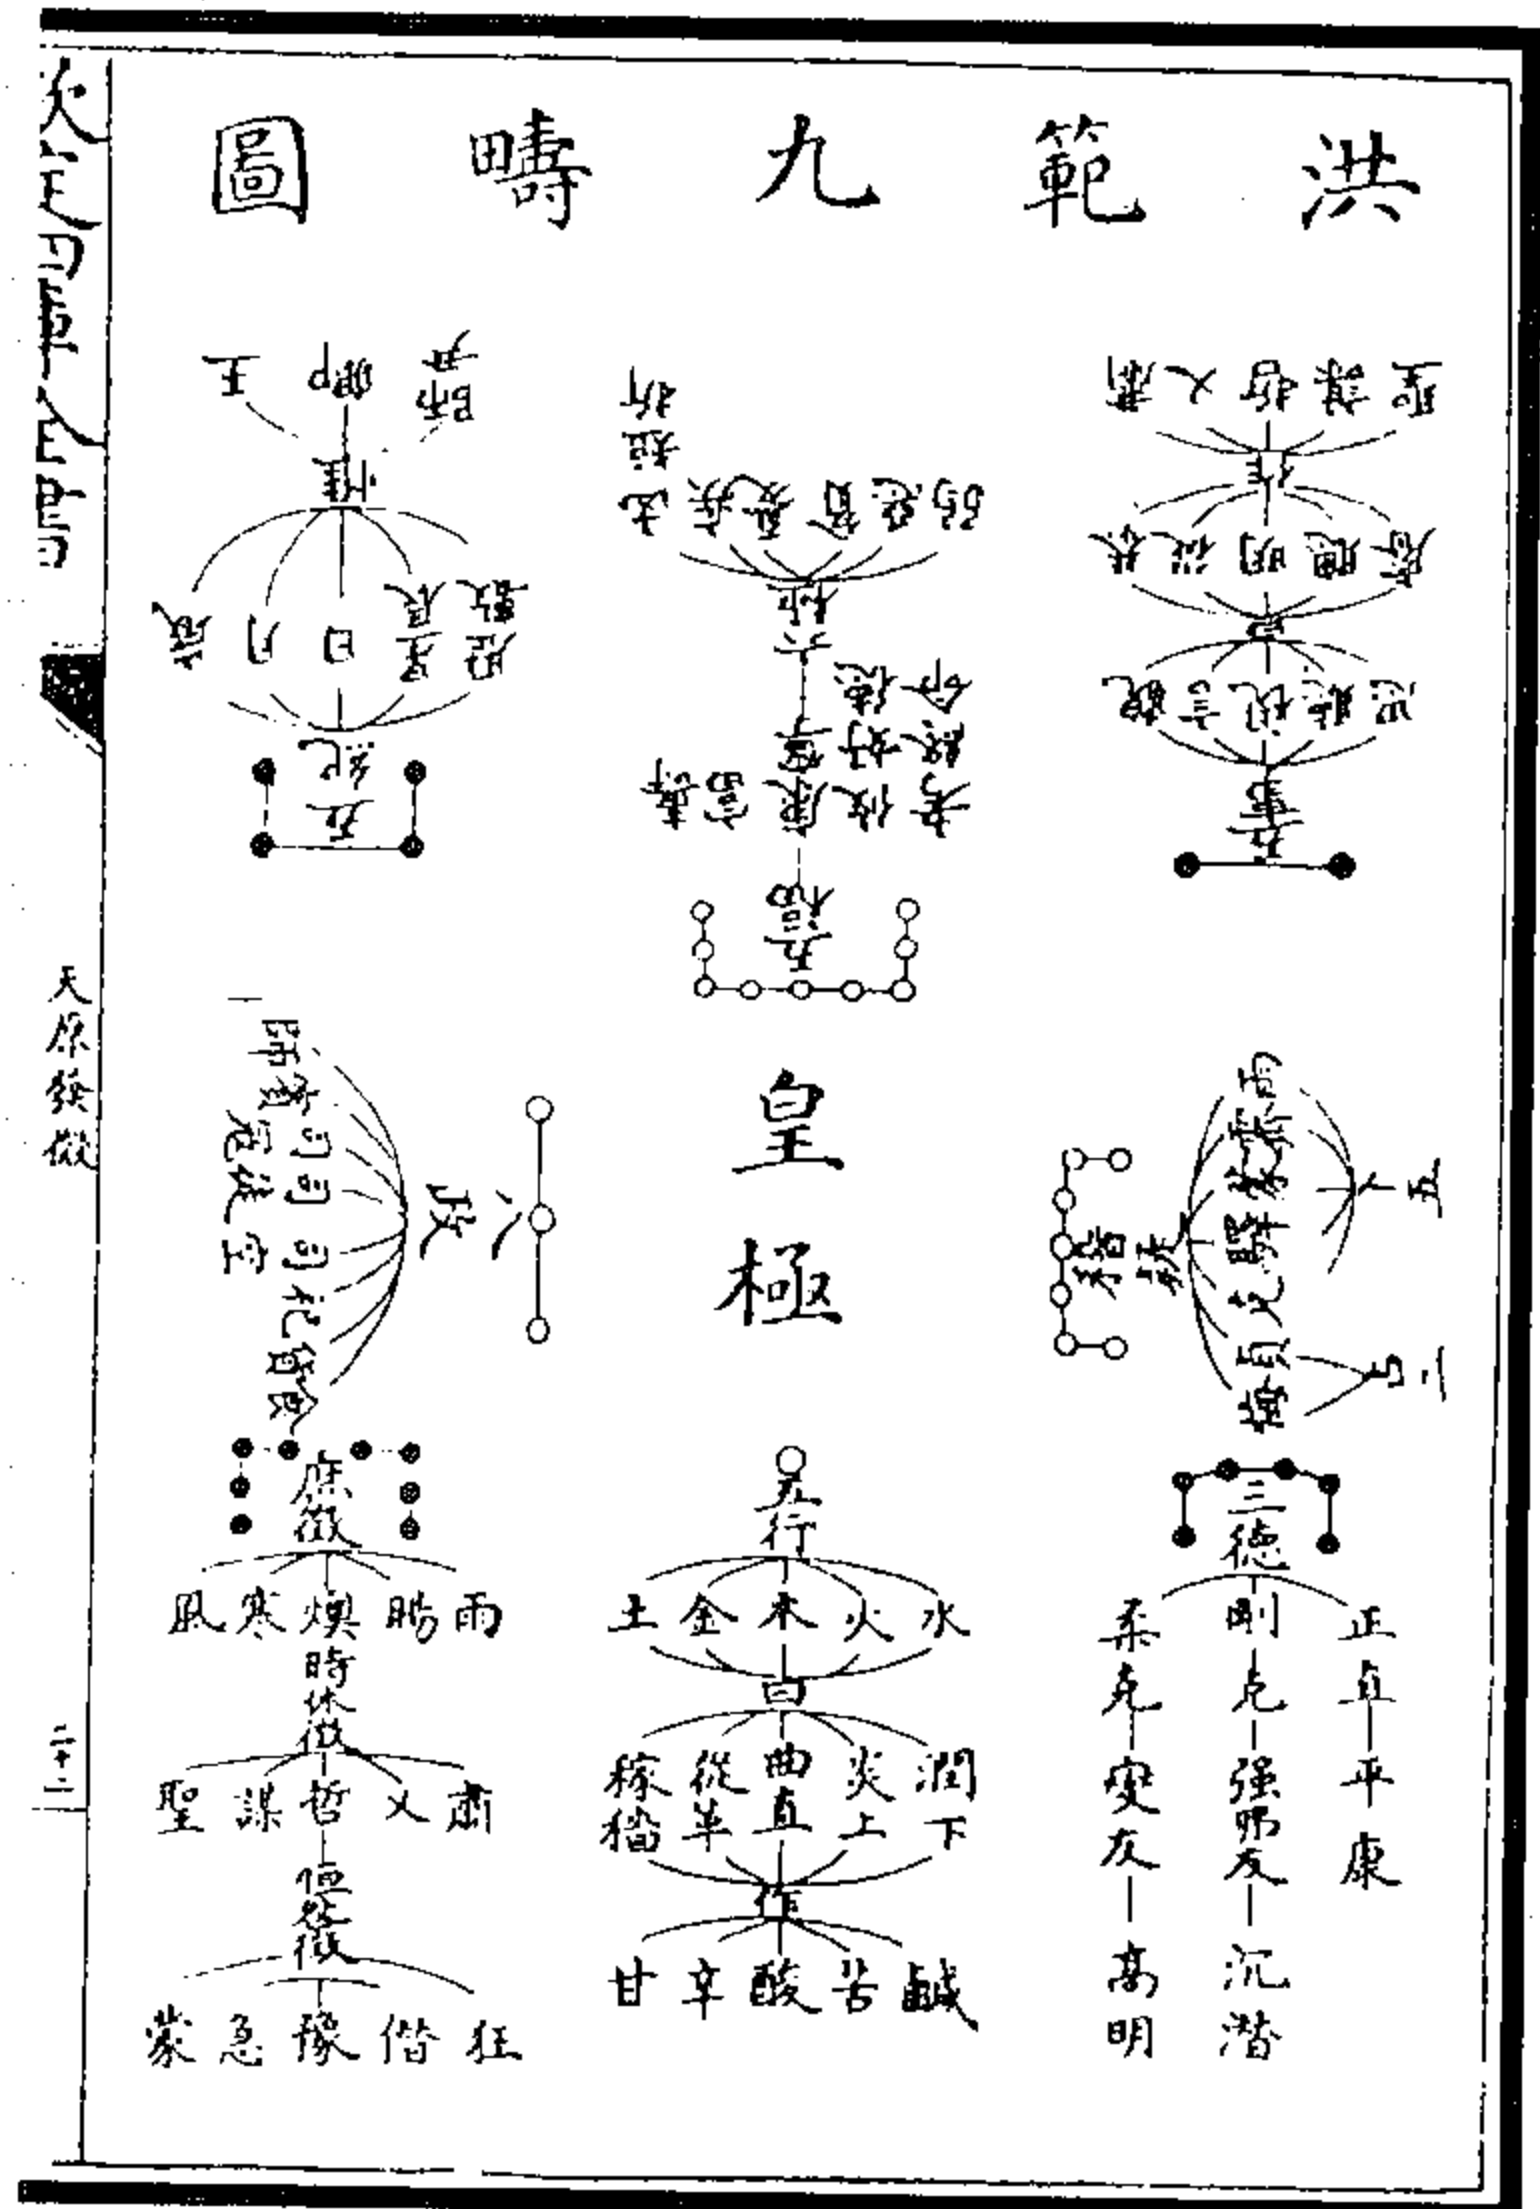 洪範九疇圖
欽定四庫全書
天原發微
二十二
五事
貌言視聽思
曰
恭從明聰睿
作
肅乂哲謀聖
五福
壽富康寧攸好德考終命
六極
凶短折疾憂貧惡弱
五紀
歲月日星辰曆數
惟
王卿師尹
皇極
八政
食貨祀司空司徒司寇賓師
稽疑
雨霽蒙驛克貞悔
五卜
二占
三德
正直平康
剛克强弗友沉潛
柔克燮友高明
五行
水火木金土
曰
潤下炎上曲直從革稼穡
作
鹹苦酸辛甘
庶徵
雨暘燠寒風
時休徵
肅乂哲謀聖
恒咎徵
狂僭豫急蒙